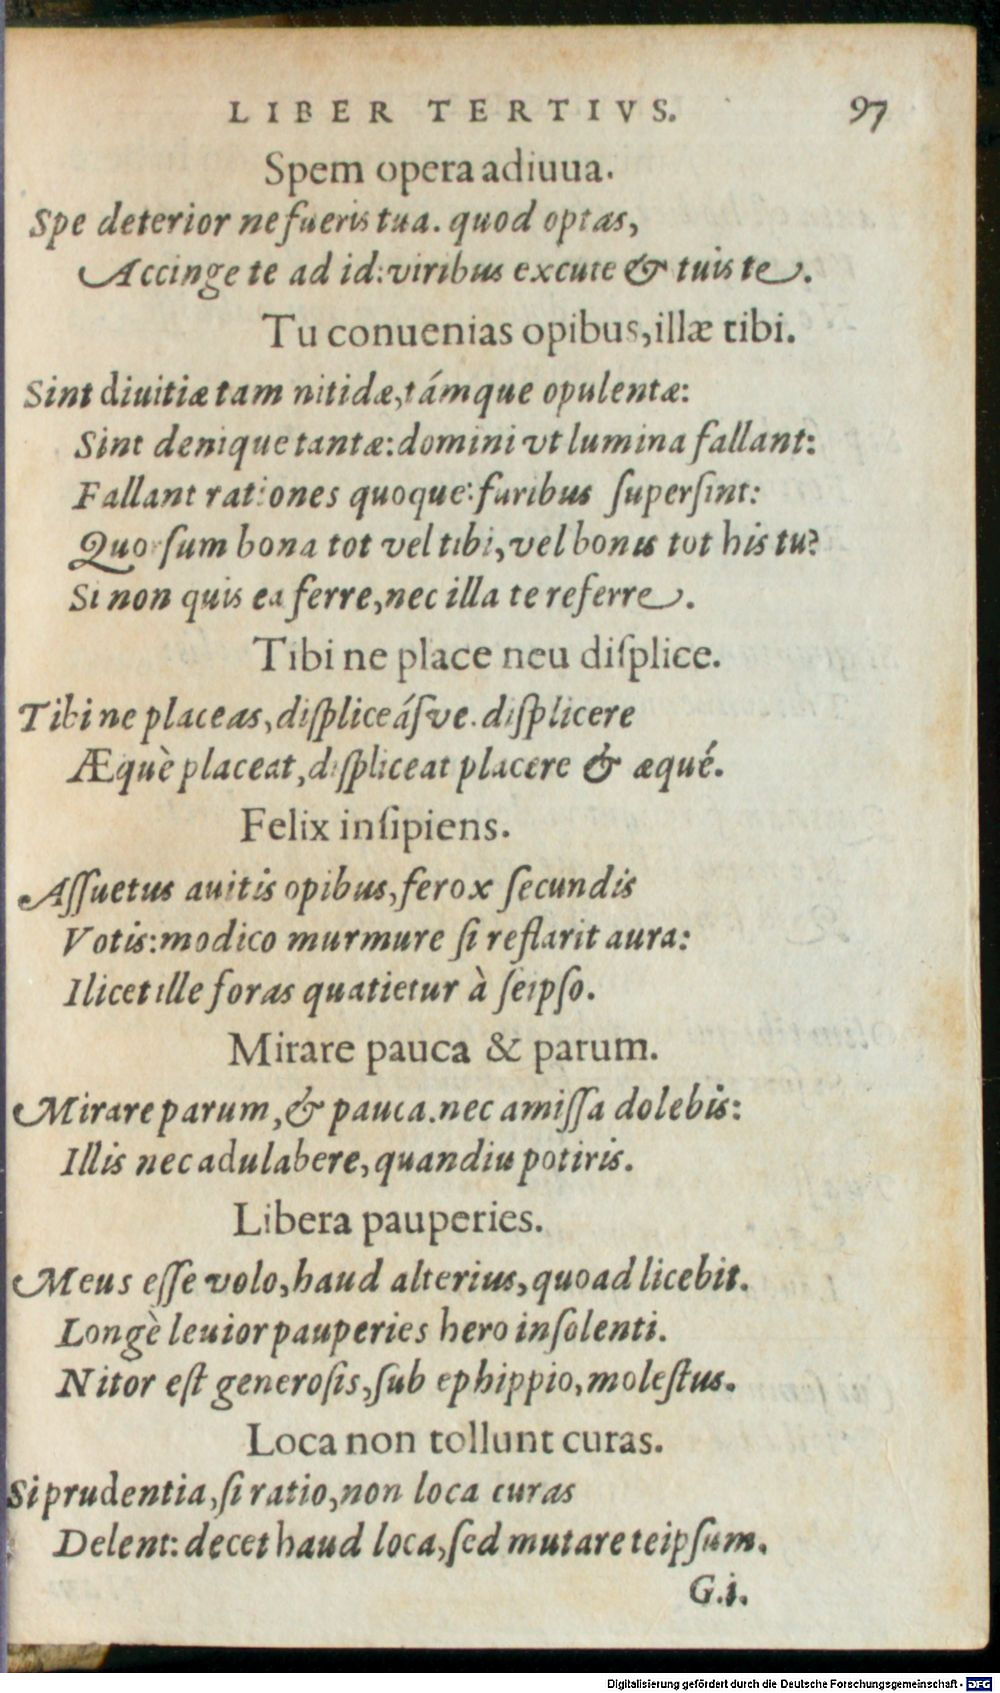 LIBER TERTIVS. 97
Spem opera adiuua.
Spe deterior ne fueris tua. quod optas,
Accinge te ad id: viribus excute & tuis te.
Tu conuenias opibus, illæ tibi.
Sint diuitiæ tam nitidæ, támque opulentæ:
Sint denique tantæ: domini vt lumina fallant:
Fallant rationes quoque: furibus ſuperſint:
Quorſum bona tot vel tibi, vel bonis tot his tu?
Si non quis ea ferre, nec illa te referre.
Tibi ne place neu diſplice.
Tibi ne placeas, diſpliceáſve. diſplicere
Æquè placeat, diſpliceat placere & æqué.
Felix inſipiens.
Aſſuetus auitis opibus, ferox ſecundis
Votis: modico murmure ſi reflarit aura:
Ilicet ille foras quatietur à ſeipſo.
Mirare pauca & parum.
Mirare parum, & pauca. nec amiſſa dolebis:
Illis nec adulabere, quandiu potiris.
Libera pauperies.
Meus eſſe volo, haud alterius, quoad licebit.
Longè leuior pauperies hero inſolenti.
Nitor eſt generoſis, ſub ephippio, moleſtus.
Loca non tollunt curas.
Si prudentia, ſi ratio, non loca curas
Delent: decet haud loca, ſed mutare teipſum.
G.i.
Digitalisierung gefördert durch die Deutsche Forschungsgemeinschaft - DFG